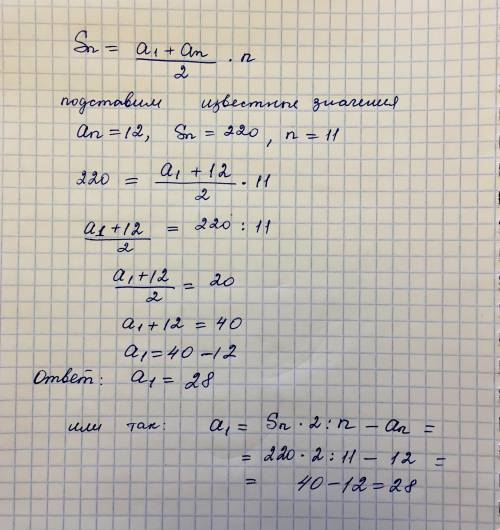 Sn = (a₁ + an)/2 · n
подставим известные значения
an = 12, Sn = 220, n = 11
220 = (a₁ + 12)/2 · 11
(a₁ + 12)/2 = 220 : 11
(a₁ + 12)/2 = 20
a₁ + 12 = 40
a₁ = 40 - 12
Ответ: a₁ = 28
или так: a₁ = Sn · 2 : n - an =
= 220 · 2 : 11 - 12 =
= 40 - 12 = 28